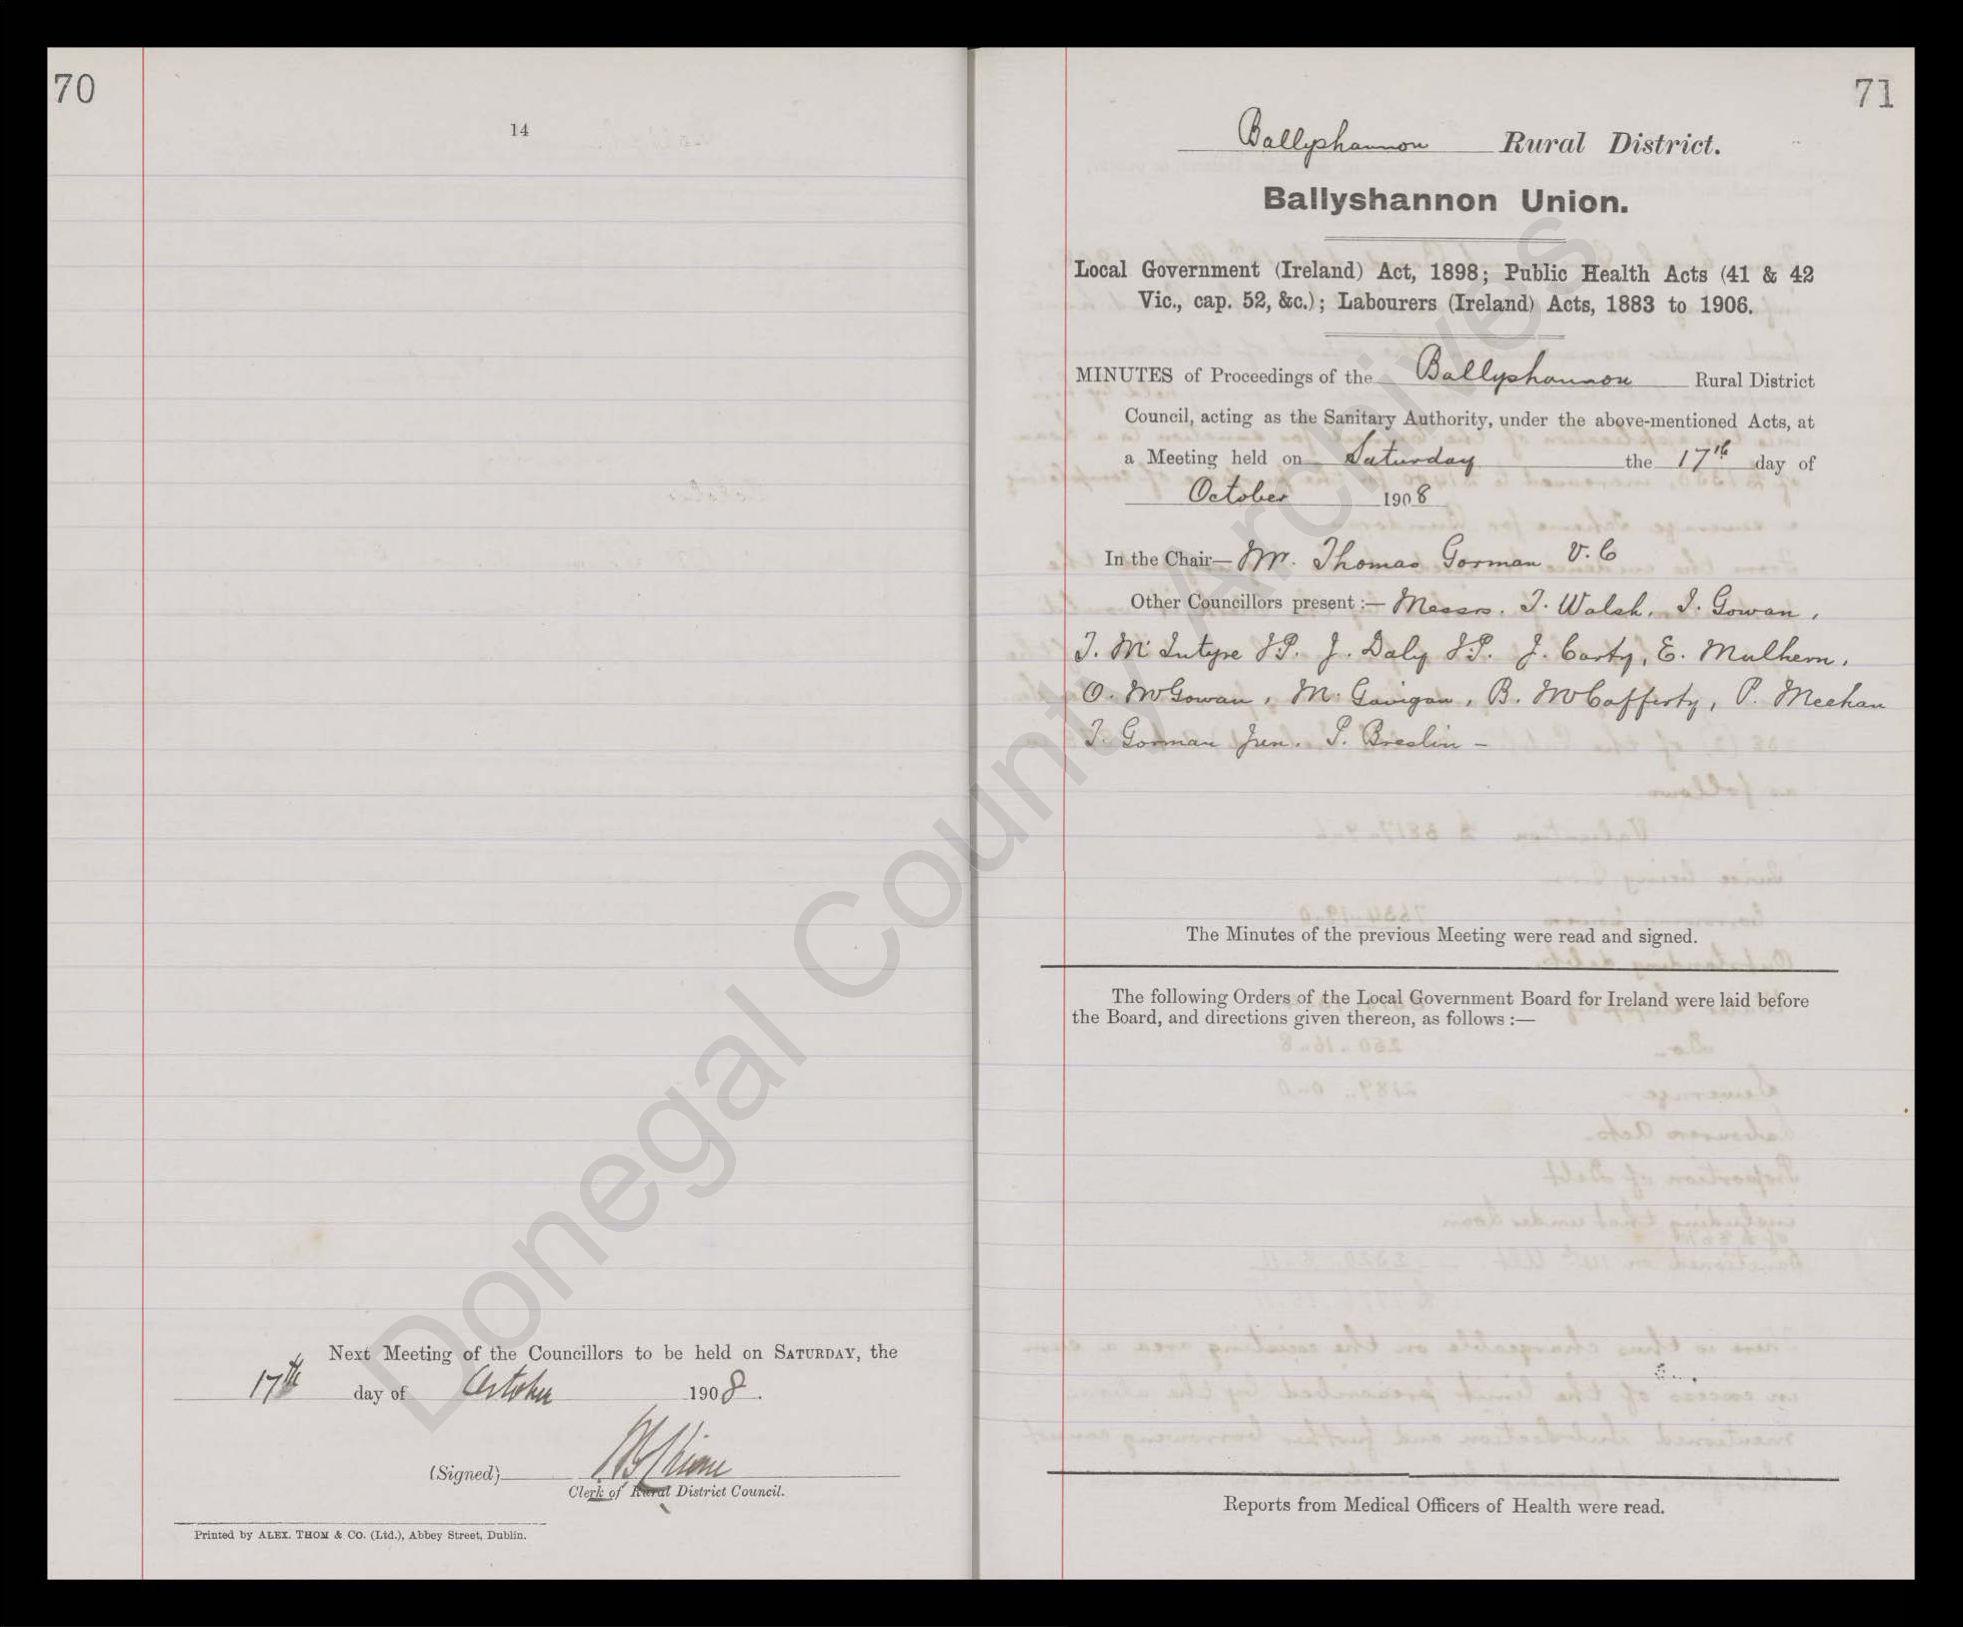 70
14
Next Meeting of the Councillors to be held on SATURDAY, the
17th day of October 1908.
(Signed)
Clerk of Rural District Council.
Printed by ALEX. THOM & CO. (Ltd.), Abbey Street, Dublin.
71
Ballyshannon Rural District.
Ballyshannon Union.
Local Government (Ireland) Act, 1898; Public Health Acts (41 & 42
Vic., cap. 52, &c.); Labourers (Ireland) Acts, 1883 to 1906.
MINUTES of Proceedings of the Ballyshannon Rural District
Council, acting as the Sanitary Authority, under the above-mentioned Acts, at
a Meeting held on Saturday the 17th day of
October 1908
In the Chair—Mr. Thomas Gorman V.C
Other Councillors present:—Messrs. T. Walsh, J. Gowan,
T. McIntyre J.P. J. Daly J.P. J. Carty, E. Mulhern,
O. McGowan, M. Gavigan, B. McCafferty, P. Meehan
T. Gorman Jun. P. Breslin -
The Minutes of the previous Meeting were read and signed.
The following Orders of the Local Government Board for Ireland were laid before
the Board, and directions given thereon, as follows:—
Reports from Medical Officers of Health were read.
Donegal County Archives